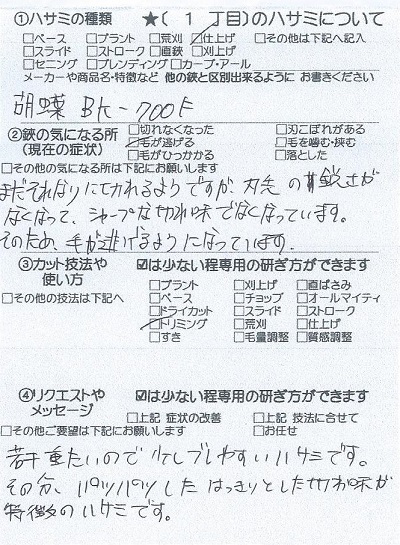 ①ハサミの種類 ★( 1 丁目)のハサミについて
□ベース □プラント □荒刈 ☑仕上げ □その他は下記へ記入
□スライド □ストローク □直鋏 □刈上げ
□セニング □ブレンディング □カーブ・アール
メーカーや商品名・特徴など 他の鋏と区別出来るように お書きください
胡蝶 BK-700F
②鋏の気になる所
(現在の症状)
□切れなくなった □刃こぼれがある
☑毛が逃げる □毛を噛む・挟む
□毛がひっかかる □落とした
□その他の気になる所は下記にお願いします
まだそれなりに切れるようですが、刃先の鋭さが
なくなって、シャープな切れ味でなくなっています。
そのため、毛が逃げるようになっています.
③カット技法や
使い方
☑は少ない程専用の研ぎ方ができます
□その他の技法は下記へ
□プラント □刈上げ □直ばさみ
□ベース □チョップ □オールマイティ
□ドライカット □スライド □ストローク
☑トリミング □荒刈 □仕上げ
□すき □毛量調整 □質感調整
④リクエストや
メッセージ
☑は少ない程専用の研ぎ方ができます
□上記 症状の改善 □上記 技法に合せて
□その他ご要望は下記にお願いします □お任せ
若干重たいので 少しブレやすいハサミです。
その分、パツパツした はっきりとした切れ味が
特徴のハサミです。